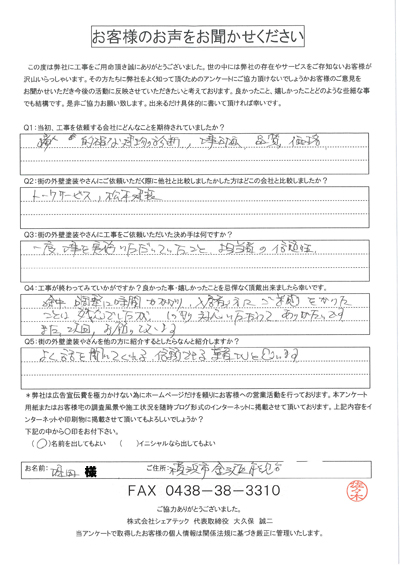 お客様のお声をお聞かせください
この度は弊社に工事をご用命頂き誠にありがとうございました。世の中には弊社の存在やサービスをご存知ないお客様が
沢山いらっしゃいます。その方たちに弊社をよく知って頂くためのアンケートにご協力頂けないでしょうかお客様のご意見を
お聞かせいただき今後の活動に反映させていただきたいと考えております。良かったこと、嬉しかったことどのような些細な事
でも結構です。是非ご協力お願い致します。出来るだけ具体的に書いて頂ければ幸いです。
Q1:当初、工事を依頼する会社にどんなことを期待されていましたか?
的確な建物の診断、品質、価格
Q2:街の外壁塗装やさんにご依頼いただく際に他社と比較しましたかした方はどこの会社と比較しましたか?
トータルサービス、松本
Q3:街の外壁塗装やさんに工事をご依頼いただいた決め手は何ですか?
一度工事を見積いただいていたこと、担当者の信頼性
Q4:工事が終わってみていかがですか?良かった事・嬉しかったことを忌憚なく頂戴出来ましたら幸いです。
途中調整に時間がかかり、ご迷惑をかけた
いただいて ありがたいです
また、次回、お願いします
Q5:街の外壁塗装やさんを他の方に紹介するとしたらなんと紹介しますか?
よく話を聞いてくれる 信頼できる業者だと思います
*弊社は広告宣伝費を極力かけない為にホームページだけを頼りにお客様への営業活動を行っております。本アンケート
用紙またはお客様宅の調査風景や施工状況を随時ブログ形式のインターネットに掲載させて頂いております。上記内容をイ
ンターネットや印刷物に掲載させて頂いてもよろしいでしょうか?
下記の中から〇印をお付下さい。
(〇)名前を出してもよい ( )イニシャルなら出してもよい
お名前: 様 ご住所: 横浜市金沢区
FAX 0438-38-3310
ご協力ありがとうございました。
株式会社シェアテック 代表取締役 大久保 誠二
当アンケートで取得したお客様の個人情報は関係法規に基づき厳正に管理いたします。